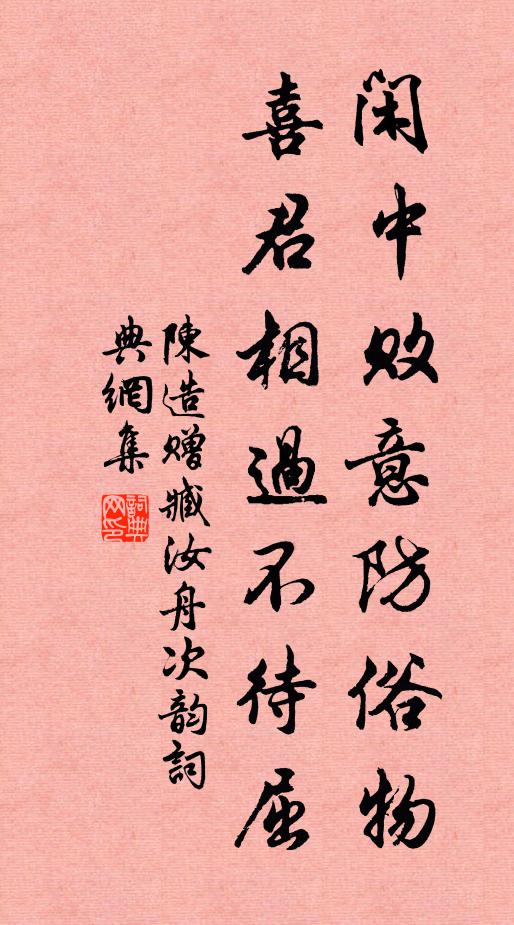 閑中敗意防俗物
喜君相過不待屈
陳造贈臧汝舟次韵詞
典網集
詞典
网印